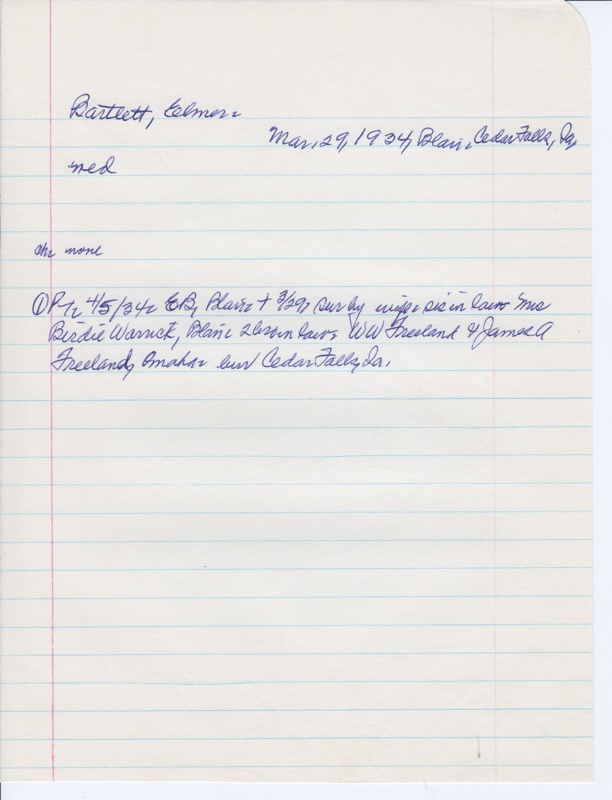 Bartlett, Elmer.
Mar, 29, 1934, Blair, Cedar Falls, Ia,
med
ch: none
① P-T: 4/5/34: EB, Blair + 3/29, sur by wife sis in law Mrs
Birdie Warrick, Blair: 2 bro in law: WW Freeland & James A
Freeland, Omaha: bur Cedar Falls, Ia.